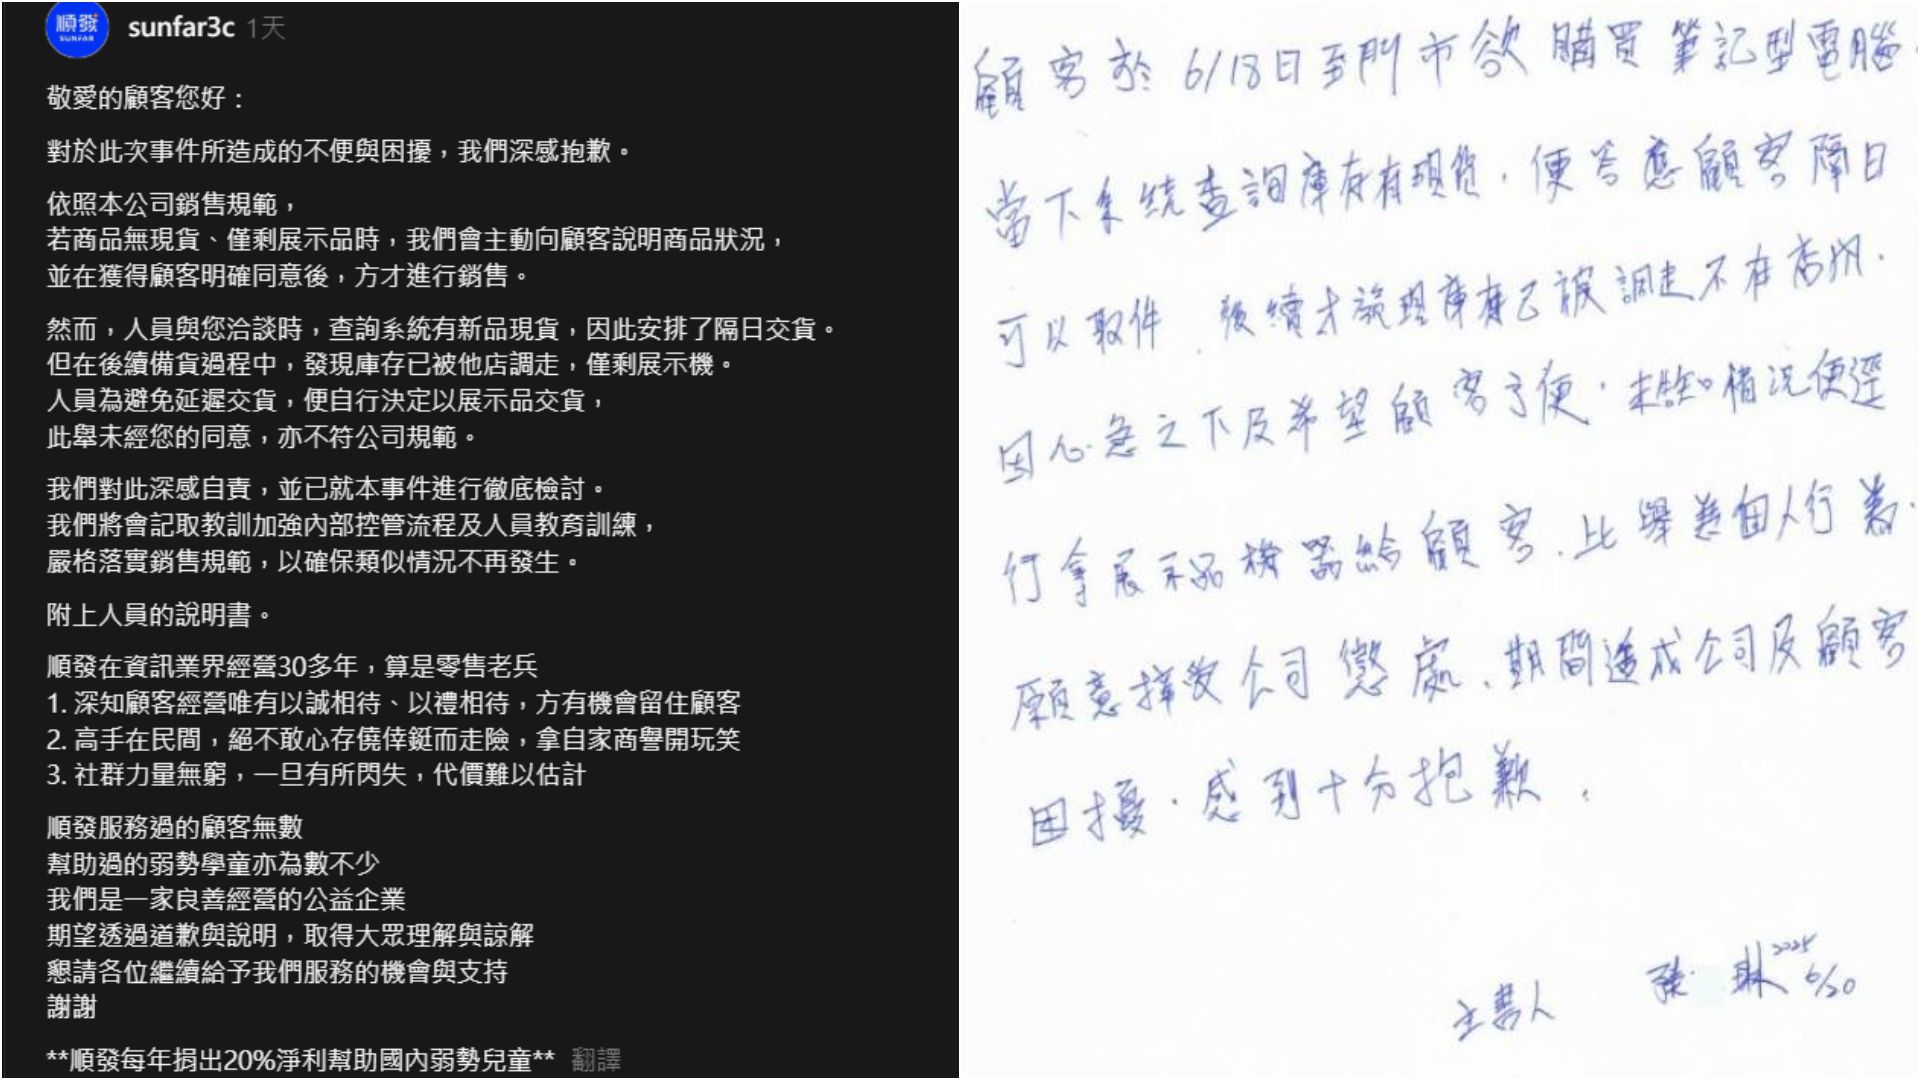 順發
SUNFAR
sunfar3c 1天
敬愛的顧客您好：
對於此次事件所造成的不便與困擾，我們深感抱歉。
依照本公司銷售規範，
若商品無現貨、僅剩展示品時，我們會主動向顧客說明商品狀況，
並在獲得顧客明確同意後，方才進行銷售。
然而，人員與您洽談時，查詢系統有新品現貨，因此安排了隔日交貨。
但在後續備貨過程中，發現庫存已被他店調走，僅剩展示機。
人員為避免延遲交貨，便自行決定以展示品交貨，
此舉未經您的同意，亦不符公司規範。
我們對此深感自責，並已就本事件進行徹底檢討。
我們將會記取教訓加強內部控管流程及人員教育訓練，
嚴格落實銷售規範，以確保類似情況不再發生。
附上人員的說明書。
順發在資訊業界經營30多年，算是零售老兵
1. 深知顧客經營唯有以誠相待、以禮相待，方有機會留住顧客
2. 高手在民間，絕不敢心存僥倖鋌而走險，拿自家商譽開玩笑
3. 社群力量無窮，一旦有所閃失，代價難以估計
順發服務過的顧客無數
幫助過的弱勢學童亦為數不少
我們是一家良善經營的公益企業
期望透過道歉與說明，取得大眾理解與諒解
懇請各位繼續給予我們服務的機會與支持
謝謝
**順發每年捐出20%淨利幫助國內弱勢兒童** 翻譯
顧客於 6/18日至門市欲購買筆記型電腦，
當下系統查詢庫存有現貨，便答應顧客隔日
可以取件，後續才發現庫存已被調走不在店內，
因心急之下及希望顧客方便，未告知情況便逕
行拿展示品機器給顧客，此舉為個人行為，
願意接受公司懲處，期間造成公司及顧客
困擾，感到十分抱歉。
主書人 張 琳 2025 6/20